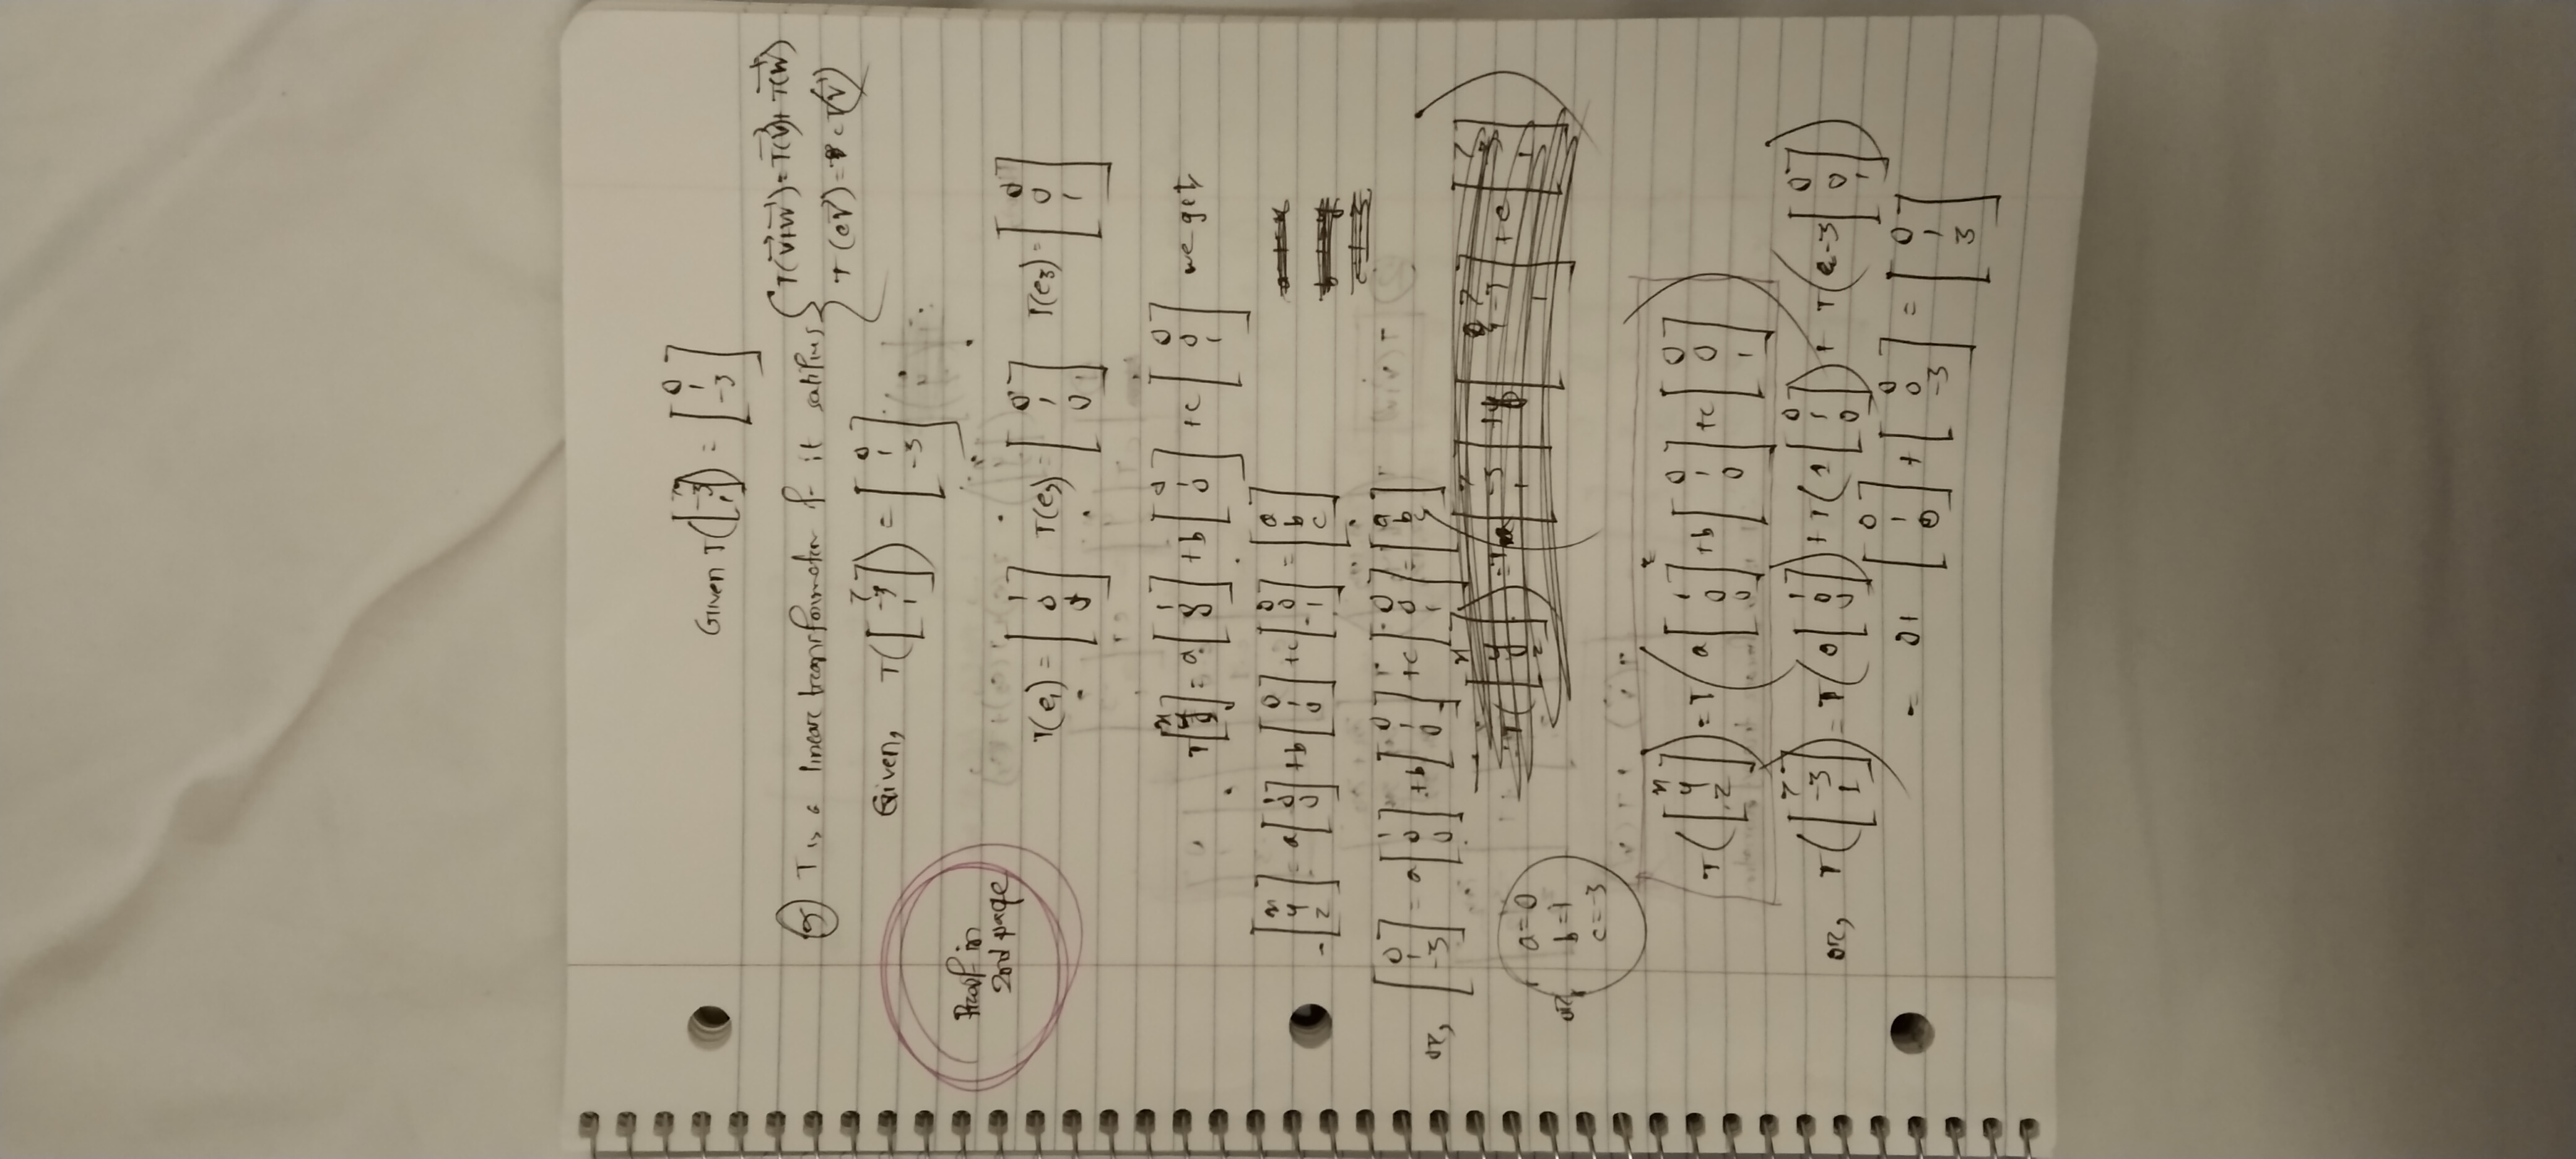 Given T([7 -3 1]) = [0 1 -3]
T is a linear transformation if it satisfies { T(v+w) = T(v) + T(w)
T(cv) = c T(v)
Given, T([7 -3 1]) = [0 1 -3]
Proof in
2nd page
T(e1) = [1 0 0] T(e2) = [0 1 0] T(e3) = [0 0 1]
T[x y z] = a[1 0 0] + b[0 1 0] + c[0 0 1] we get
[x y z] = a[1 0 0] + b[0 1 0] + c[0 0 1] = [a b c]
or, [0 1 -3] = a[1 0 0] + b[0 1 0] + c[0 0 1] = [a b c]
or, a=0
b=1
c=-3
T([x y z]) = T(a[1 0 0] + b[0 1 0] + c[0 0 1])
or, T([7 -3 1]) = T(0[1 0 0]) + T(1[0 1 0]) + T(-3[0 0 1])
= 0+ [0 1 0] + [0 0 -3] = [0 1 3]